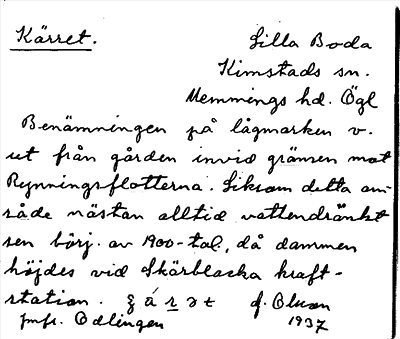 Kärret.
Lilla Boda
Kimstads sn.
Memmings hd. Ögl
Benämningen på lågmarken v.
ut från gården invid gränsen mot
Rynningsflotterna. Liksom detta om-
råde nästan alltid vattendränkt
sen börj. av 1900-tal., då dammen
höjdes vid Skärblacka kraft-
station.
Jmfr. Odlingen
1937